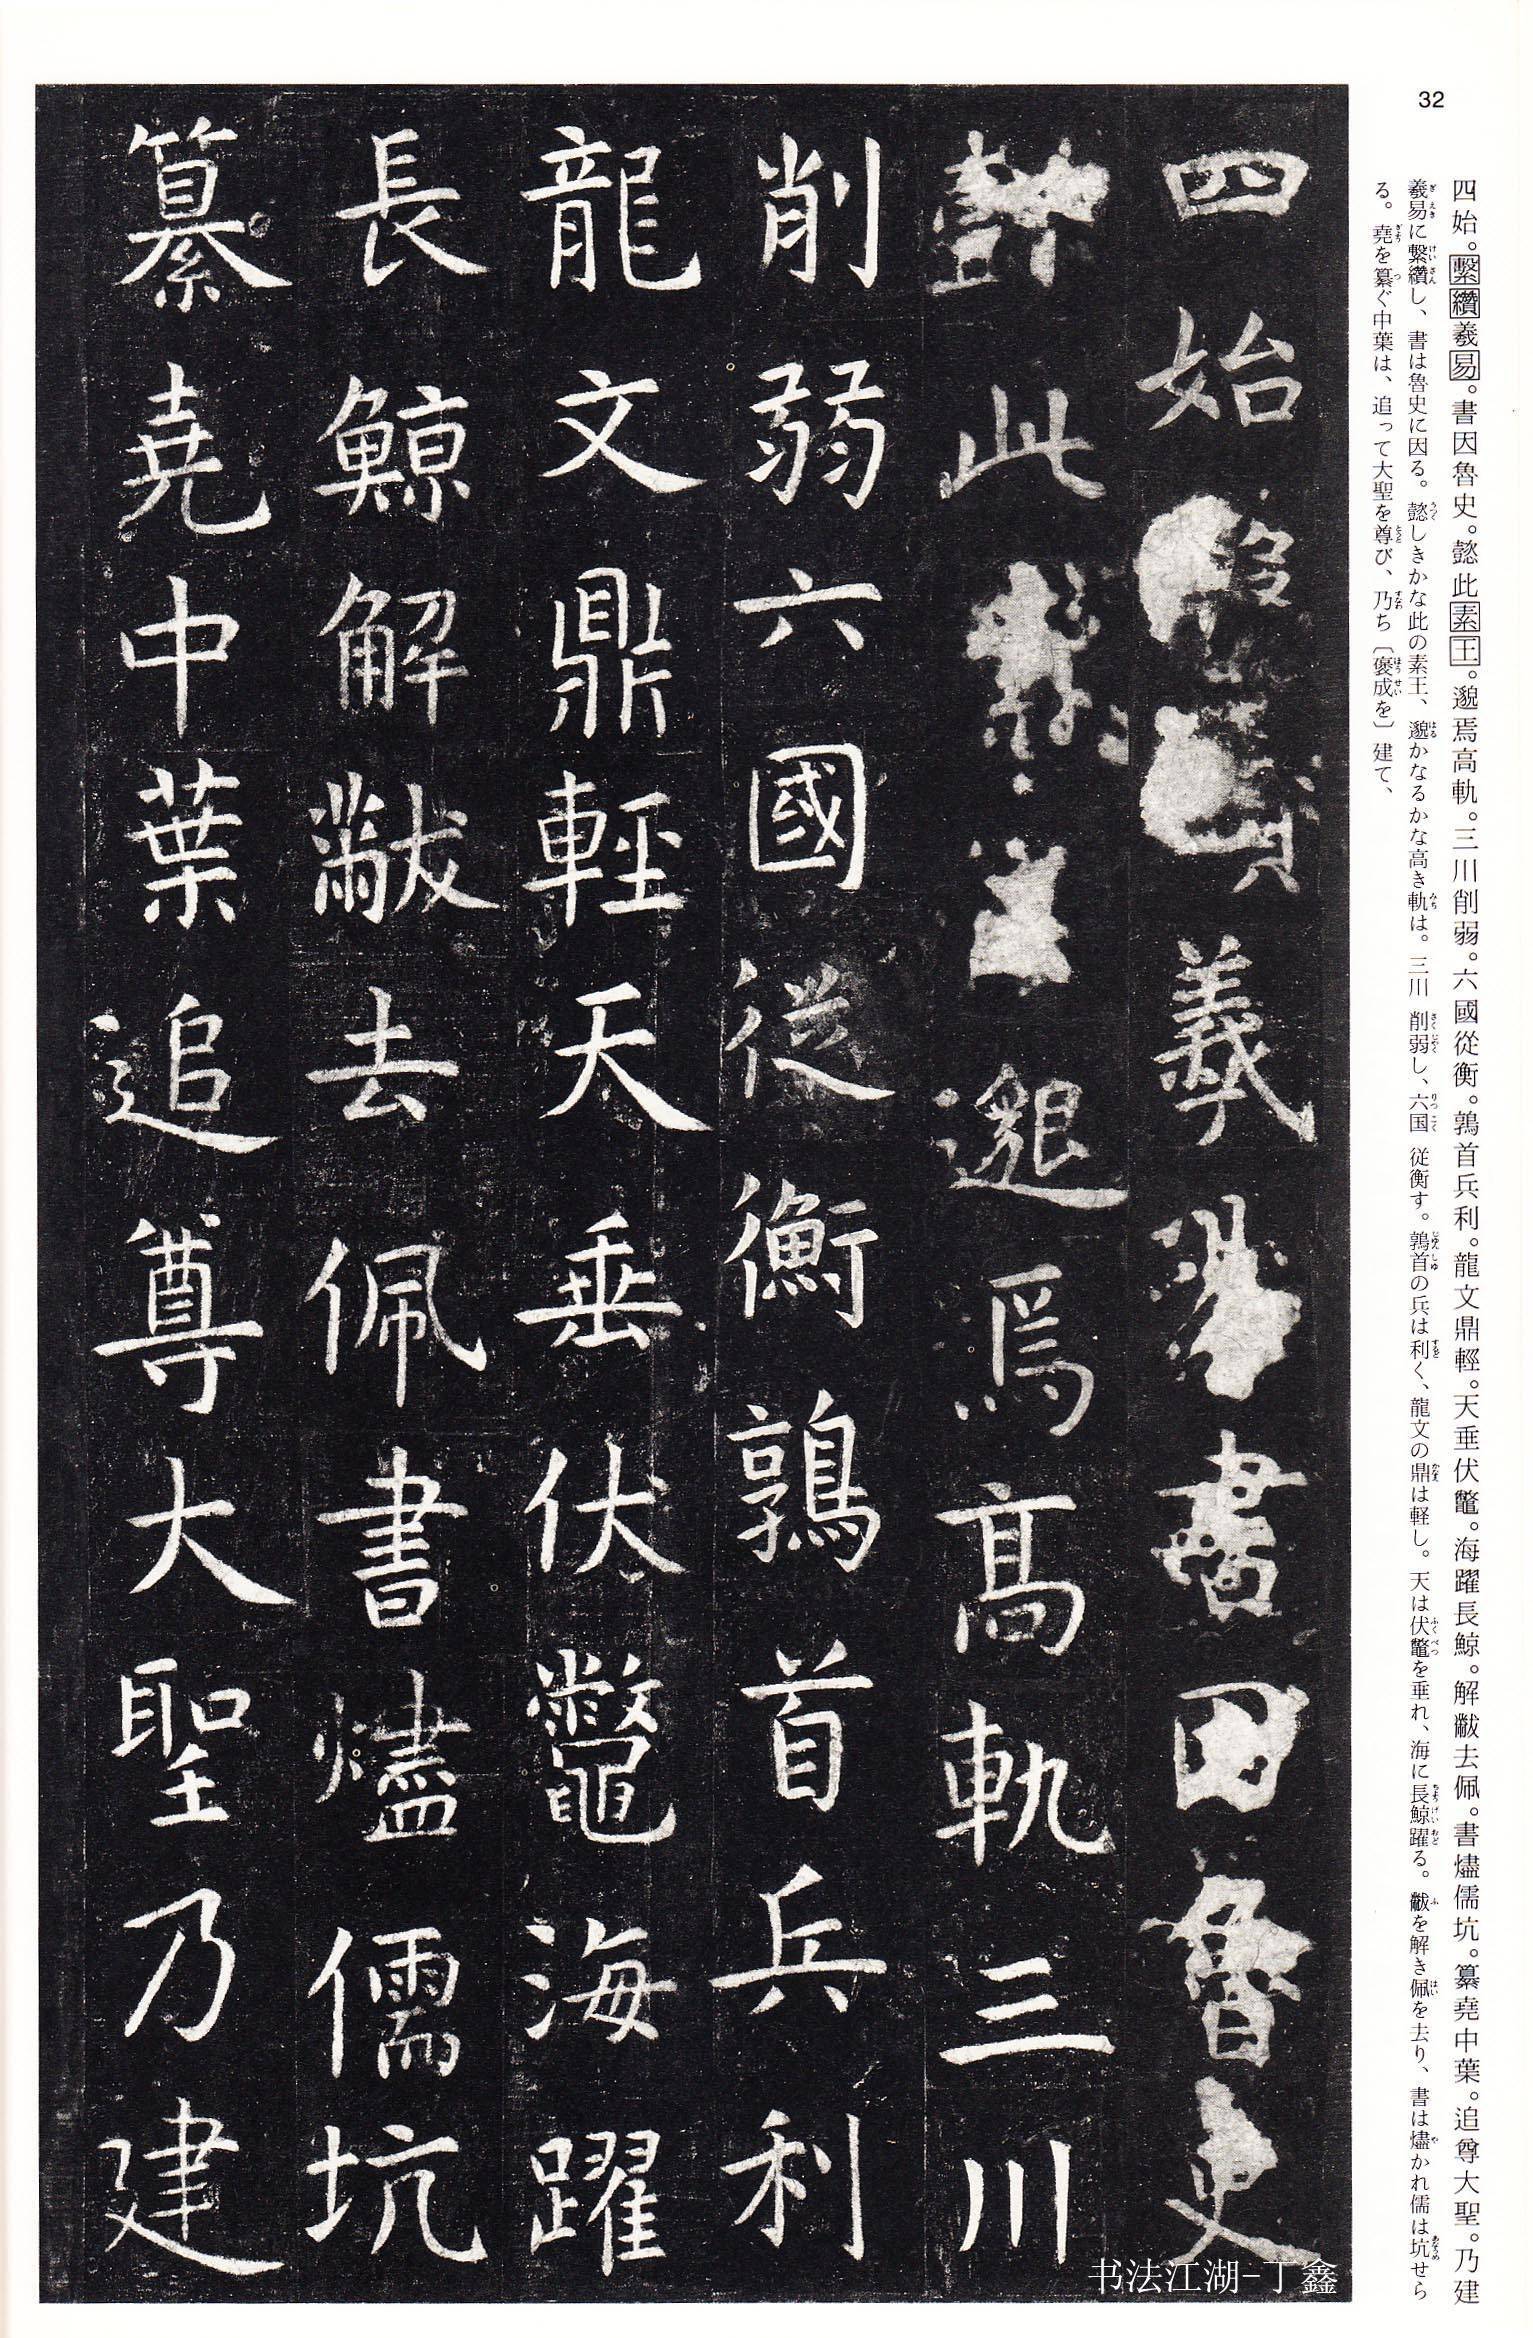 32
四始。繫纘羲易。書因魯史。懿此素王。邈焉高軌。三川削弱。六國從衡。鶉首兵利。龍文鼎輕。天垂伏鼈。海躍長鯨。解黻去佩。書燼儒坑。纂堯中葉。追尊大聖。乃建
羲易に繫纘し、書は魯史に因る。懿しきかな此の素王、邈かなるかな高き軌は。三川 削弱し、六国 従衡す。鶉首の兵は利く、龍文の鼎は軽し。天は伏鼈を垂れ、海に長鯨躍る。黻を解き佩を去り、書は燼かれ儒は坑せら
る。堯を纂ぐ中葉は、追って大聖を尊び、乃ち〔褒成を〕建て、
四始羲書因魯史
懿此邈焉高軌三川
削弱六國從衡鶉首兵利
龍文鼎輕天垂伏鼈海躍
長鯨解黻去佩書燼儒坑
纂堯中葉追尊大聖乃建
书法江湖-丁鑫